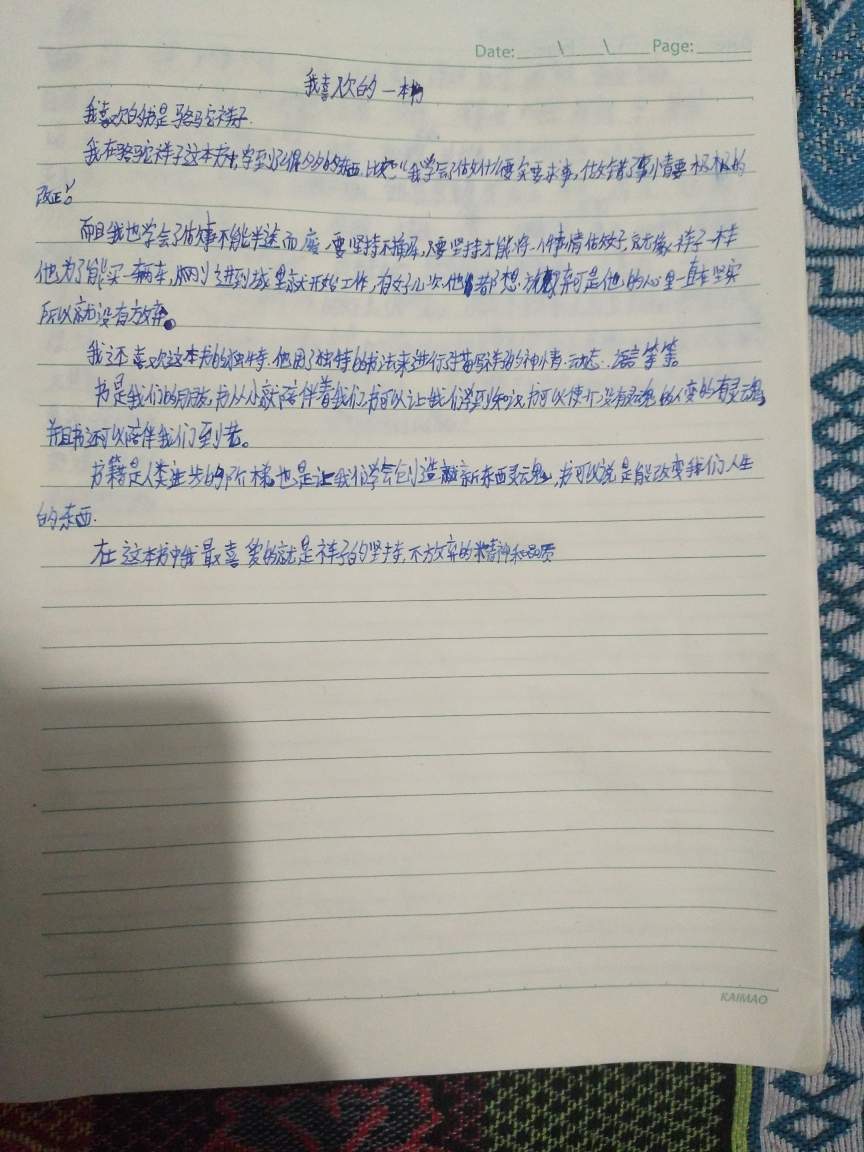 Date: \ \ Page:
我喜欢的一本书
我喜欢的书是骆驼祥子.
我在骆驼祥子这本书中学到了很多的东西,比如:“我学会了做什么要实事求事,做错了事情要积极的
改正”。
而且我也学会了做事不能半途而废,要坚持不懈,只要坚持才能将一件事情做好,就像祥子一样
他为了能买一辆车,刚进到城里就开始工作,有好几次他都想放弃可是他的心里一直在坚实
所以就没有放弃。
我还喜欢这本书的独特.他用了独特的书法来进行描写祥子的神情.动态.语言等等。
书是我们的朋友,书从小就陪伴着我们,书可以让我们学到知识,书可以使一个没有灵魂的人变的有灵魂,
并且书还可以陪伴我们到老。
书籍是人类进步的阶梯,也是让我们学会创造新东西灵魂,书可以说是能改变我们人生
的东西.
在这本书中我最喜爱的就是祥子的坚持,不放弃的精神和品质
KAIMAO